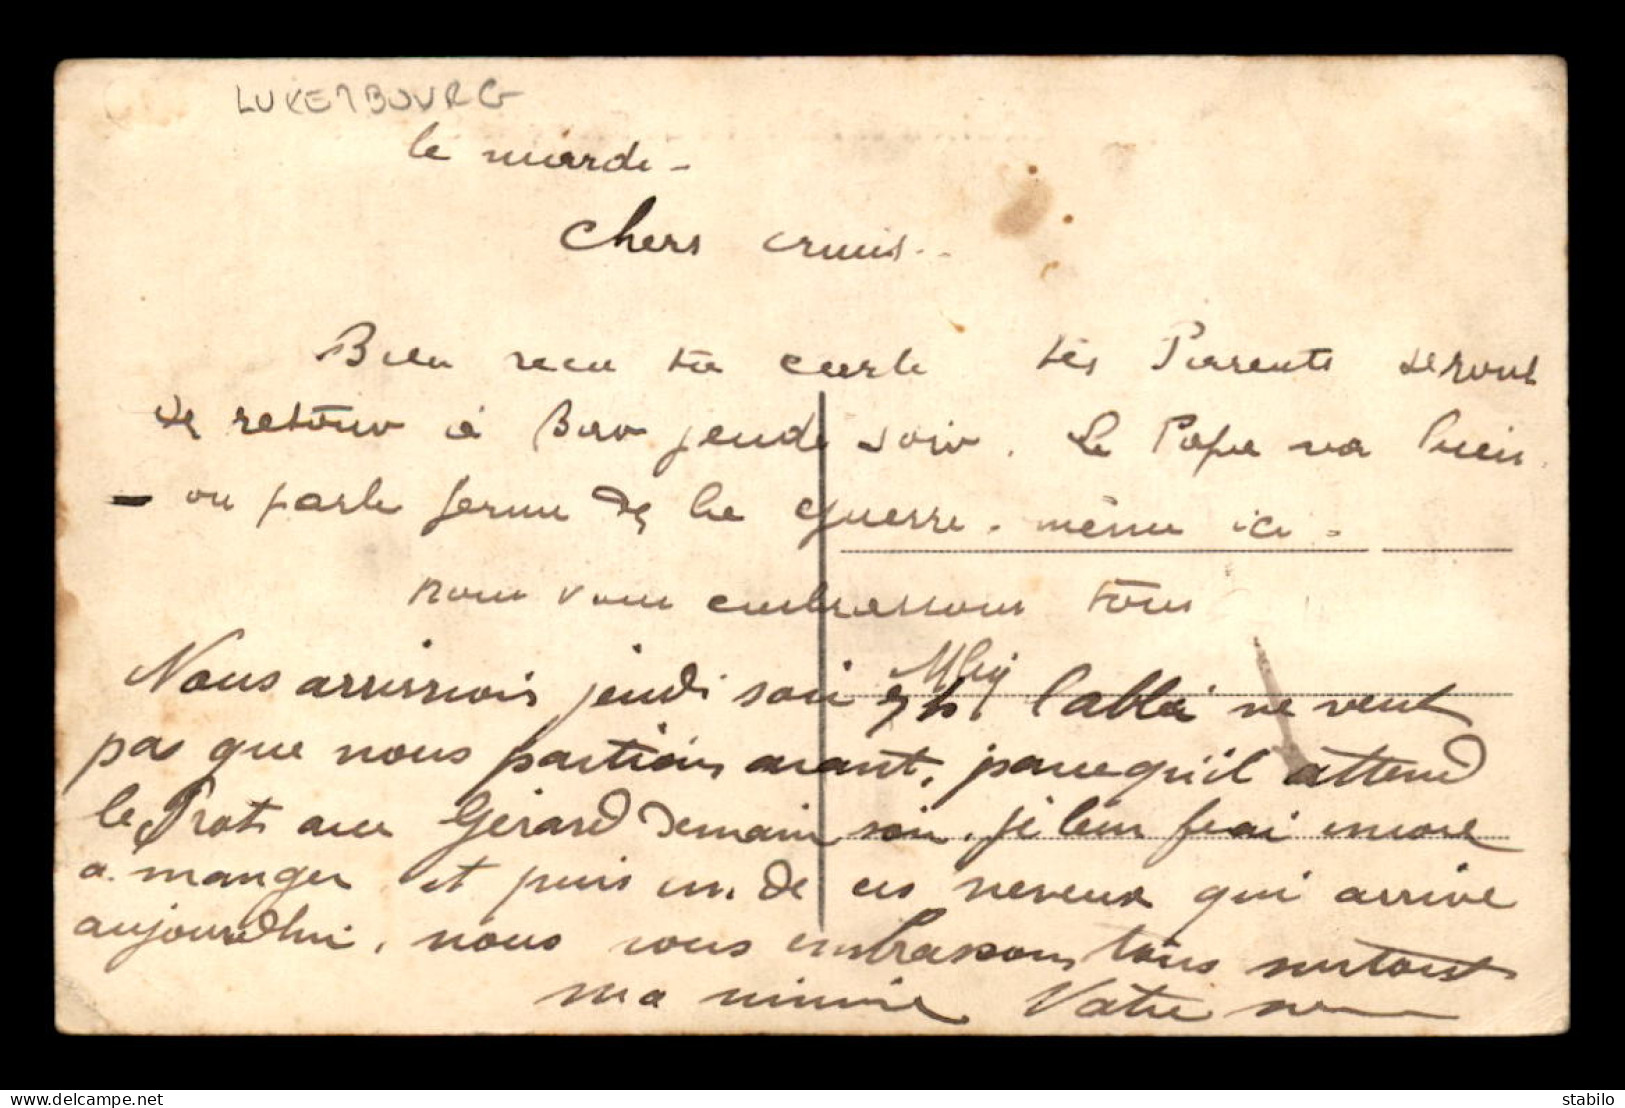 LUXEMBOURG
le mardi -
Chers amis..
Bien recu ta carte tes Parents seront
de retour à Bar jeudi soir. Le Papa va bien.
- on parle ferme de la guerre. même ici.
nous vous embrassons tous
Nous arriverons jeudi soir 7h. l'abbé ne veut
pas que nous partions avant, parcequ'il attend
le avec Gérard demain soir. je leur ferai encore
a manger et puis un de ces neveux qui arrive
aujourd'hui, nous vous embrassons tous surtout
ma mimie Votre
www.delcampe.net
stabilo